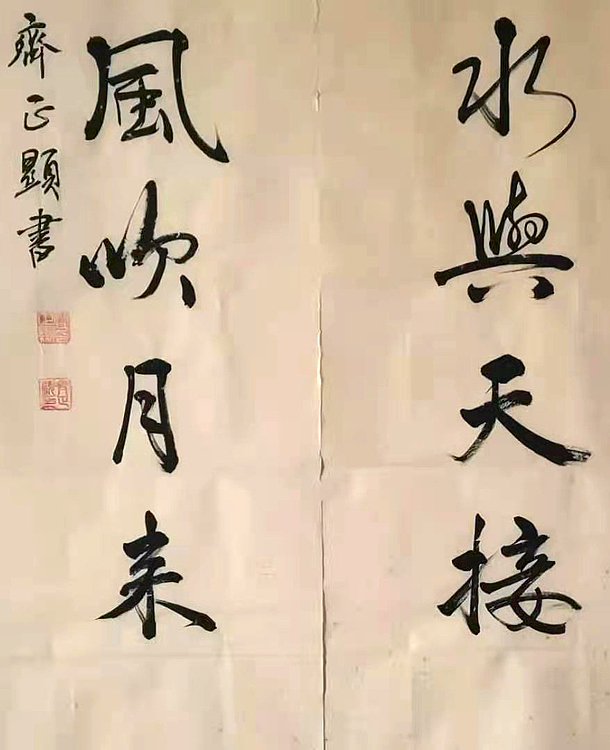 水與天接
風吹月来
齊正顯書